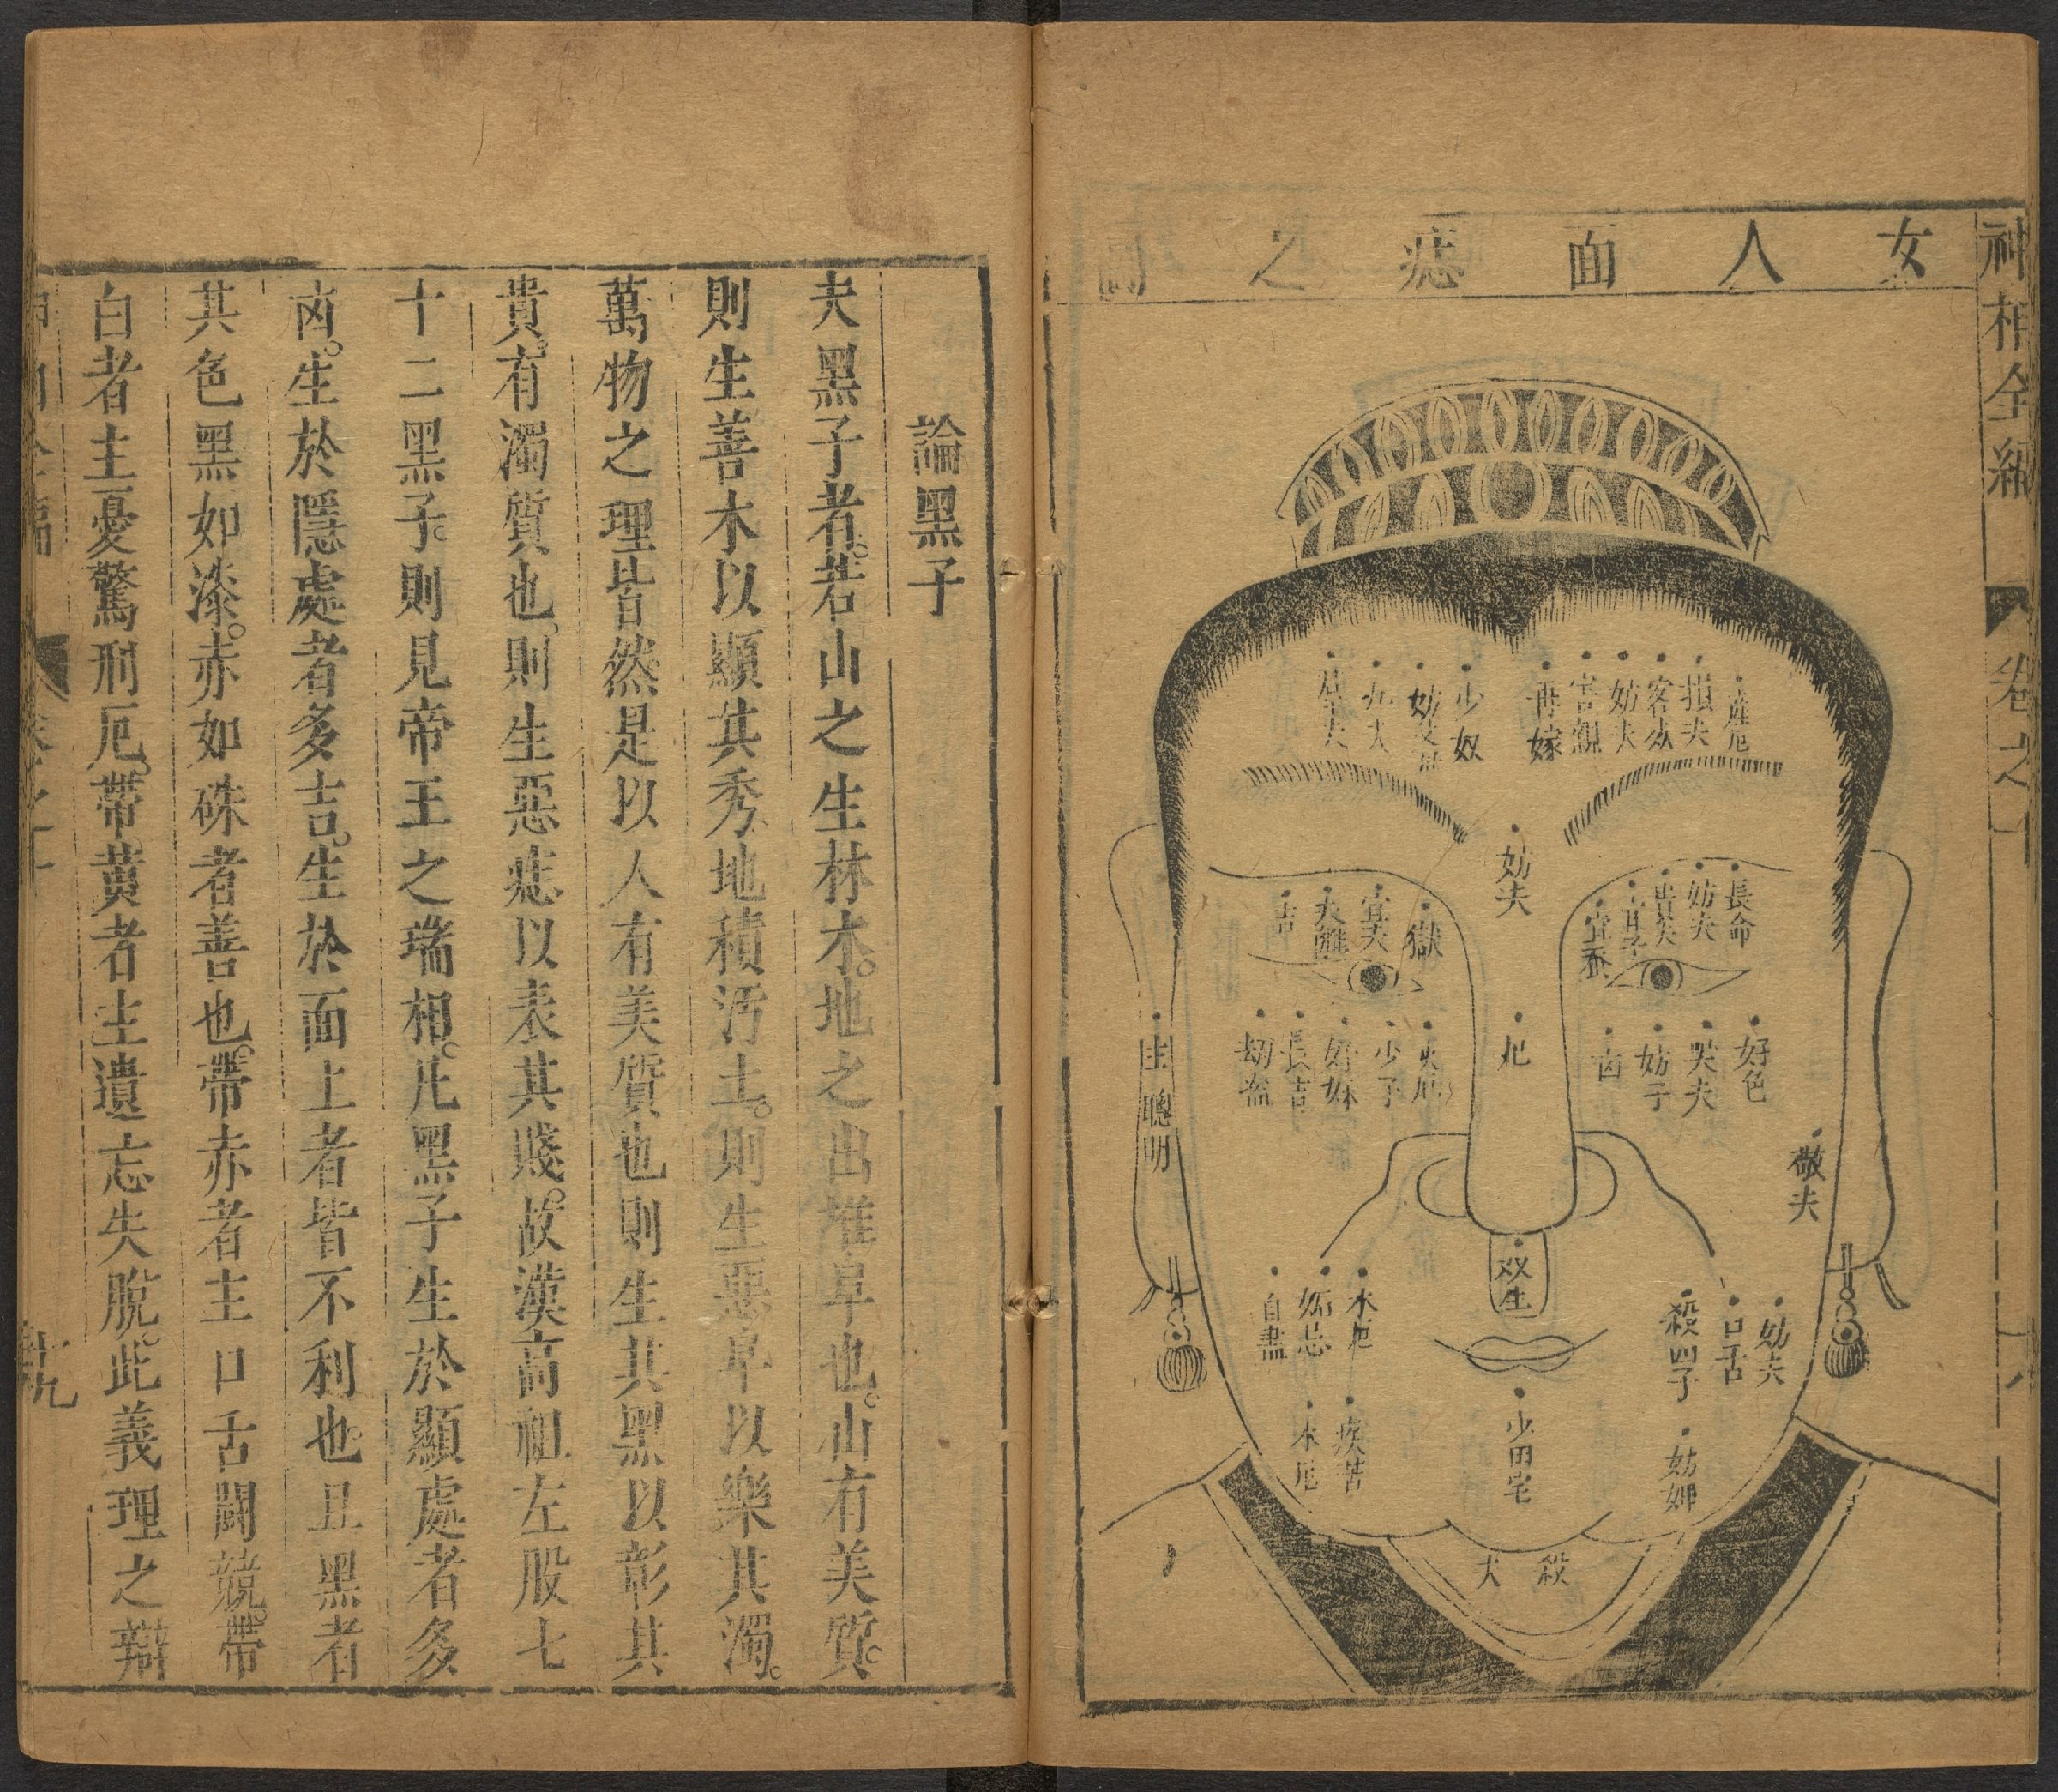 神相全編
卷之十
女人面痣之圖
產厄
損夫
客死
妨夫
害親
再嫁
少奴
妨父母
九夫
長命
妨夫
出夫
宜子
宜蚕
妨夫
獄
宜夫
吉
好色
哭夫
妨子
凶
厄
火厄
少子
長吉
刼盗
主聰明
敬夫
双生
妨夫
口舌
殺四子
水厄
妬忌
自盡
妨婢
少田宅
疾苦
水厄
殺夫
論黑子
夫黑子者。若山之生林木。地之出堆阜也。山有美質。
則生善木以顯其秀、地積汚土。則生惡阜以樂其濁。
萬物之理皆然。是以人有美質也則生其黑以彰其
貴。有濁質也、則生惡痣以表其賤。故漢高祖左股七
十二黑子。則見帝王之瑞相。凡黑子生於顯處者多
凶。生於隱處者多吉。生於面上者皆不利也。且黑者
其色黑如漆。赤如硃者善也。帶赤者主口舌鬭競。帶
白者主憂驚刑厄。帶黃者主遺忘失脫。此義理之辯